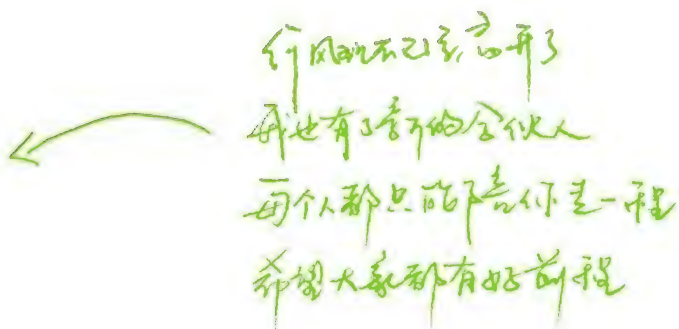 风现已经离开了
我也有了新的合伙人
每个人都只能陪你走一程
希望大家都有好前程